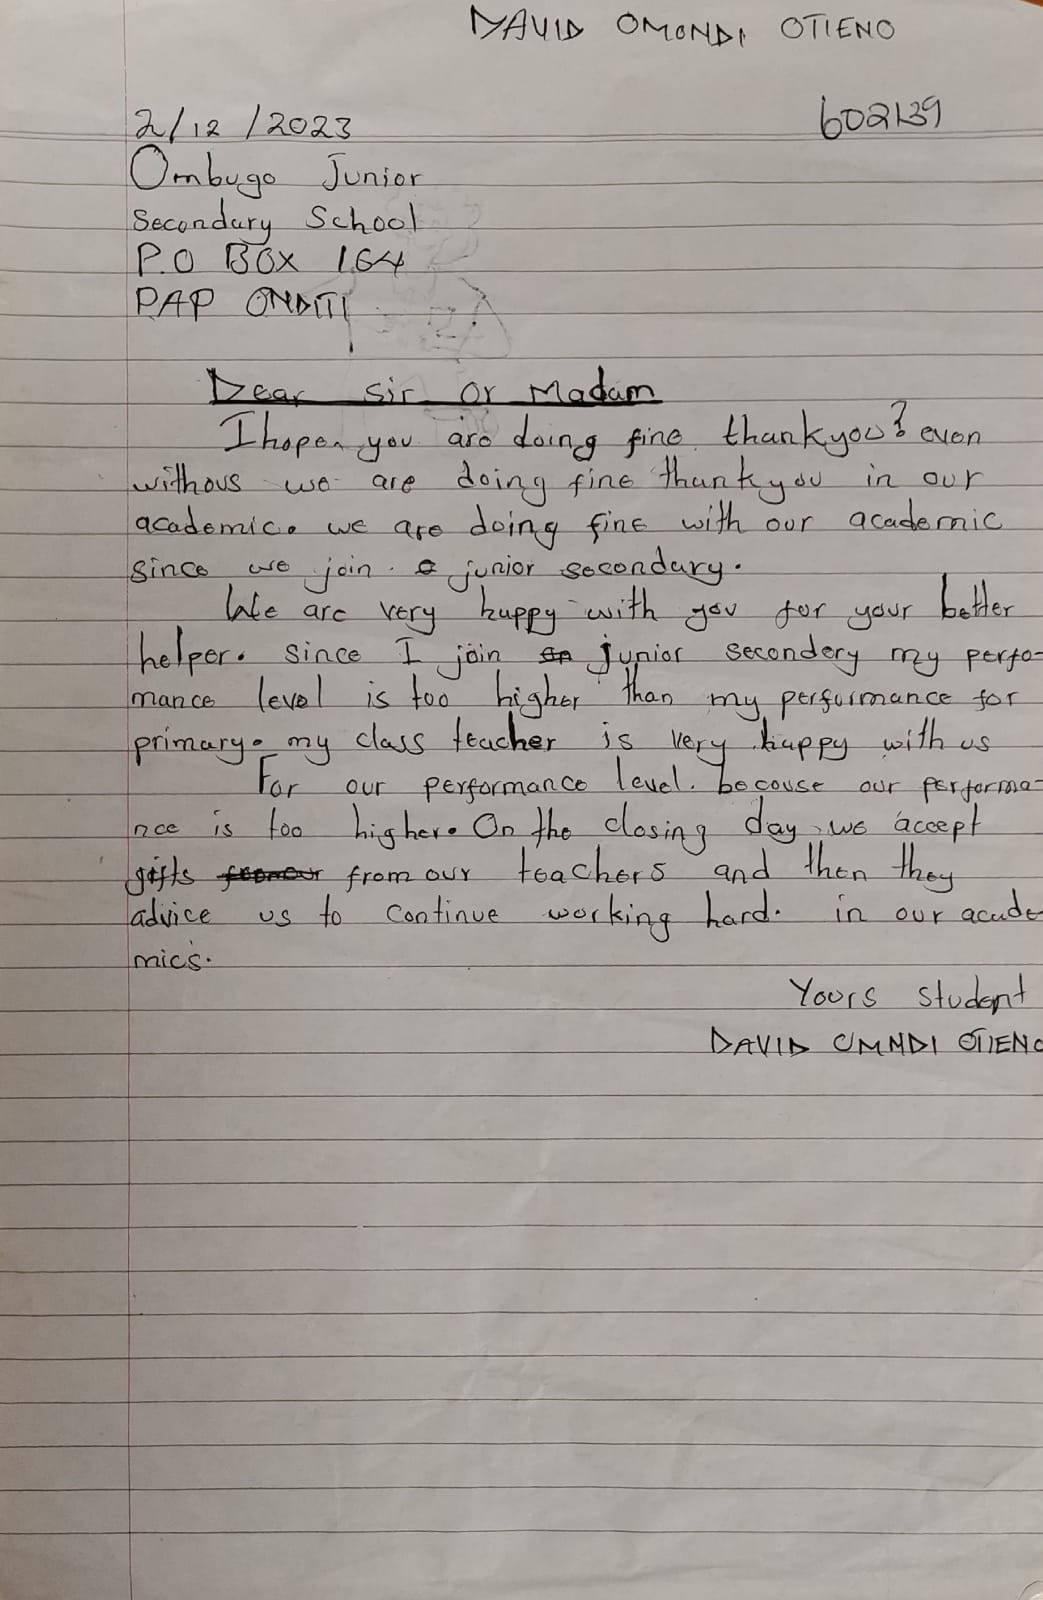 DAVID OMONDI OTIENO
602139
2/12/2023
Ombugo Junior
Secondary School
P.O BOX 164
PAP ONDITI
Dear Sir or Madam
I hope you are doing fine thankyou? even
withous we are doing fine thankyou in our
academic. we are doing fine with our academic
since we join junior secondary.
We are very happy with you for your better
helper. since I join junior secondery my perfo-
mance level is too higher than my performance for
primary. my class teacher is very happy with us
For our performance level. because our performa-
nce is too higher. On the closing day we accept
gifts from our teachers and then they
advice us to continue working hard. in our acade-
mics.
Yours student
DAVID OMNDI OTIENO